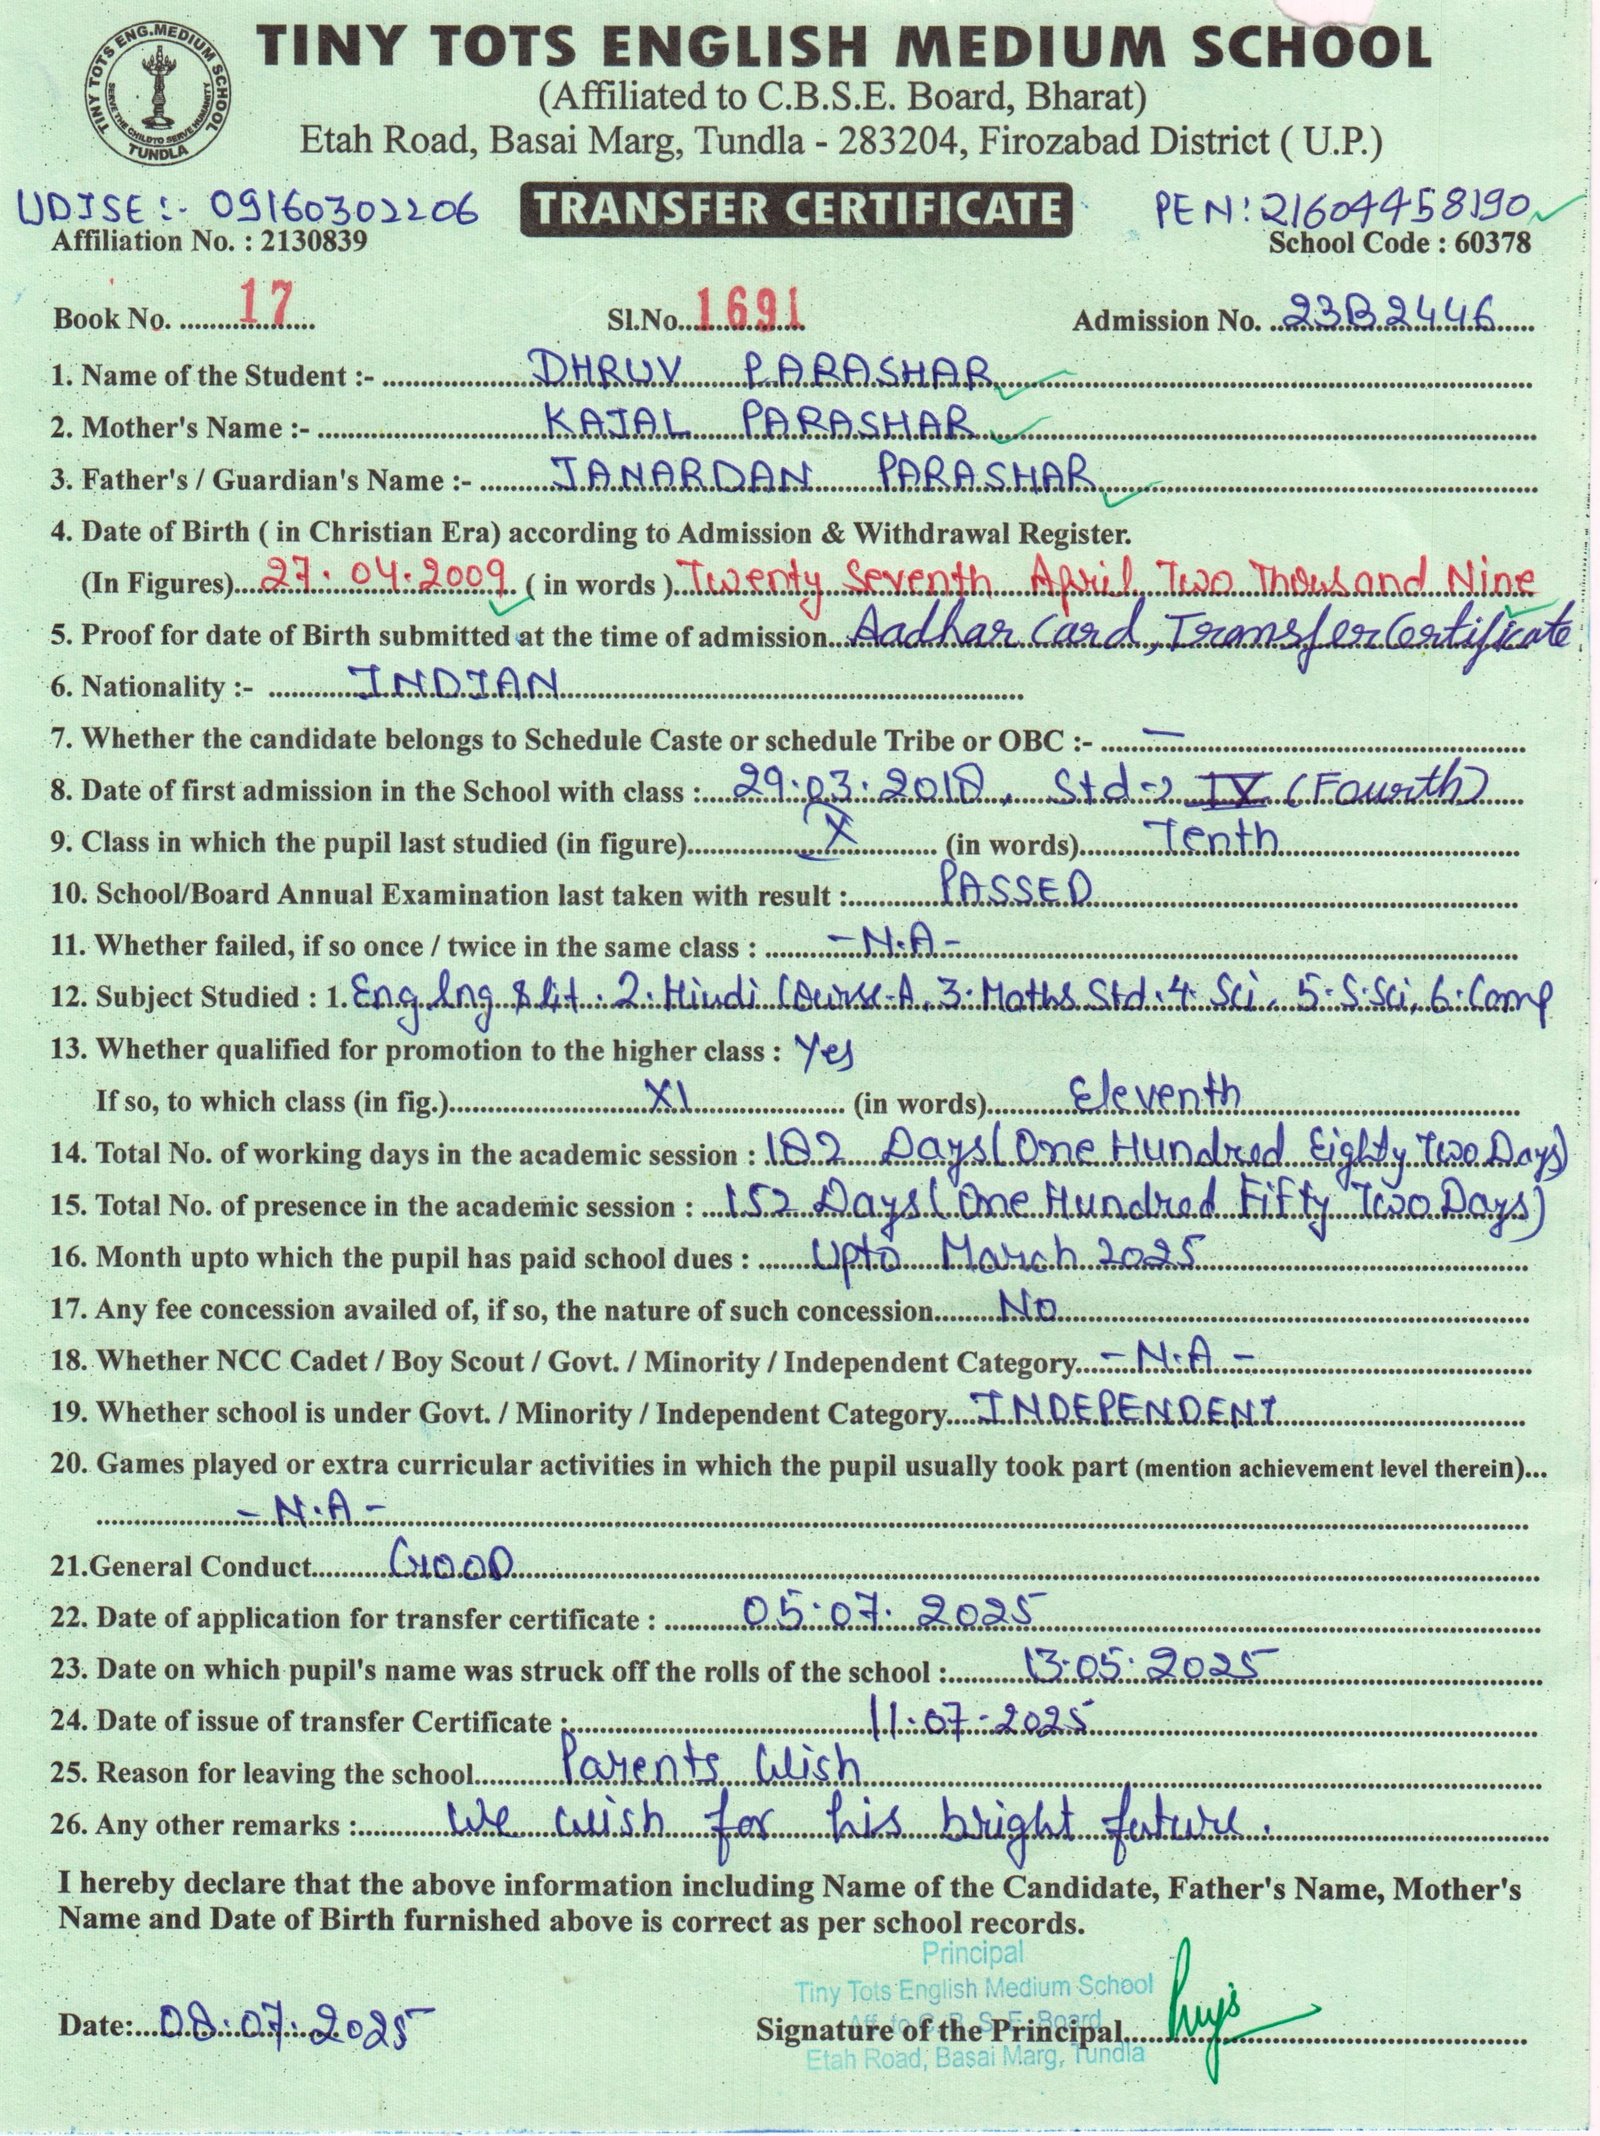 TINY TOTS ENG. MEDIUM SCHOOL
SERVE THE CHILD TO SERVE HUMANITY
TUNDLA
TINY TOTS ENGLISH MEDIUM SCHOOL
(Affiliated to C.B.S.E. Board, Bharat)
Etah Road, Basai Marg, Tundla - 283204, Firozabad District ( U.P.)
UDISE :- 09160302206 TRANSFER CERTIFICATE PEN: 21604458190
Affiliation No. : 2130839 School Code : 60378
Book No. 17 Sl.No. 1691 Admission No. 23B2446
1. Name of the Student :- DHRUV PARASHAR
2. Mother's Name :- KAJAL PARASHAR
3. Father's / Guardian's Name :- JANARDAN PARASHAR
4. Date of Birth ( in Christian Era) according to Admission & Withdrawal Register.
(In Figures) 27.04.2009 ( in words ) Twenty Seventh April Two Thousand Nine
5. Proof for date of Birth submitted at the time of admission Aadhar Card, Transfer Certificate
6. Nationality :- INDIAN
7. Whether the candidate belongs to Schedule Caste or schedule Tribe or OBC :- —
8. Date of first admission in the School with class : 29.03.2018, Std -> IV (Fourth)
9. Class in which the pupil last studied (in figure) X (in words) Tenth
10. School/Board Annual Examination last taken with result : PASSED
11. Whether failed, if so once / twice in the same class : -N.A-
12. Subject Studied : 1. Eng lng & lit. 2. Hindi Course-A, 3. Maths Std. 4. Sci, 5. S.Sci, 6. Comp
13. Whether qualified for promotion to the higher class : Yes
If so, to which class (in fig.) XI (in words) Eleventh
14. Total No. of working days in the academic session : 182 Days (One Hundred Eighty Two Days)
15. Total No. of presence in the academic session : 152 Days (One Hundred Fifty Two Days)
16. Month upto which the pupil has paid school dues : Upto March 2025
17. Any fee concession availed of, if so, the nature of such concession NO
18. Whether NCC Cadet / Boy Scout / Govt. / Minority / Independent Category -N.A-
19. Whether school is under Govt. / Minority / Independent Category INDEPENDENT
20. Games played or extra curricular activities in which the pupil usually took part (mention achievement level therein)...
-N.A-
21.General Conduct GOOD
22. Date of application for transfer certificate : 05.07.2025
23. Date on which pupil's name was struck off the rolls of the school : 13.05.2025
24. Date of issue of transfer Certificate : 11.07.2025
25. Reason for leaving the school Parents Wish
26. Any other remarks : We wish for his bright future.
I hereby declare that the above information including Name of the Candidate, Father's Name, Mother's
Name and Date of Birth furnished above is correct as per school records.
Principal
Tiny Tots English Medium School
Aff. to C.B.S.E. Board
Date: 08.07.2025 Signature of the Principal
Etah Road, Basai Marg, Tundla